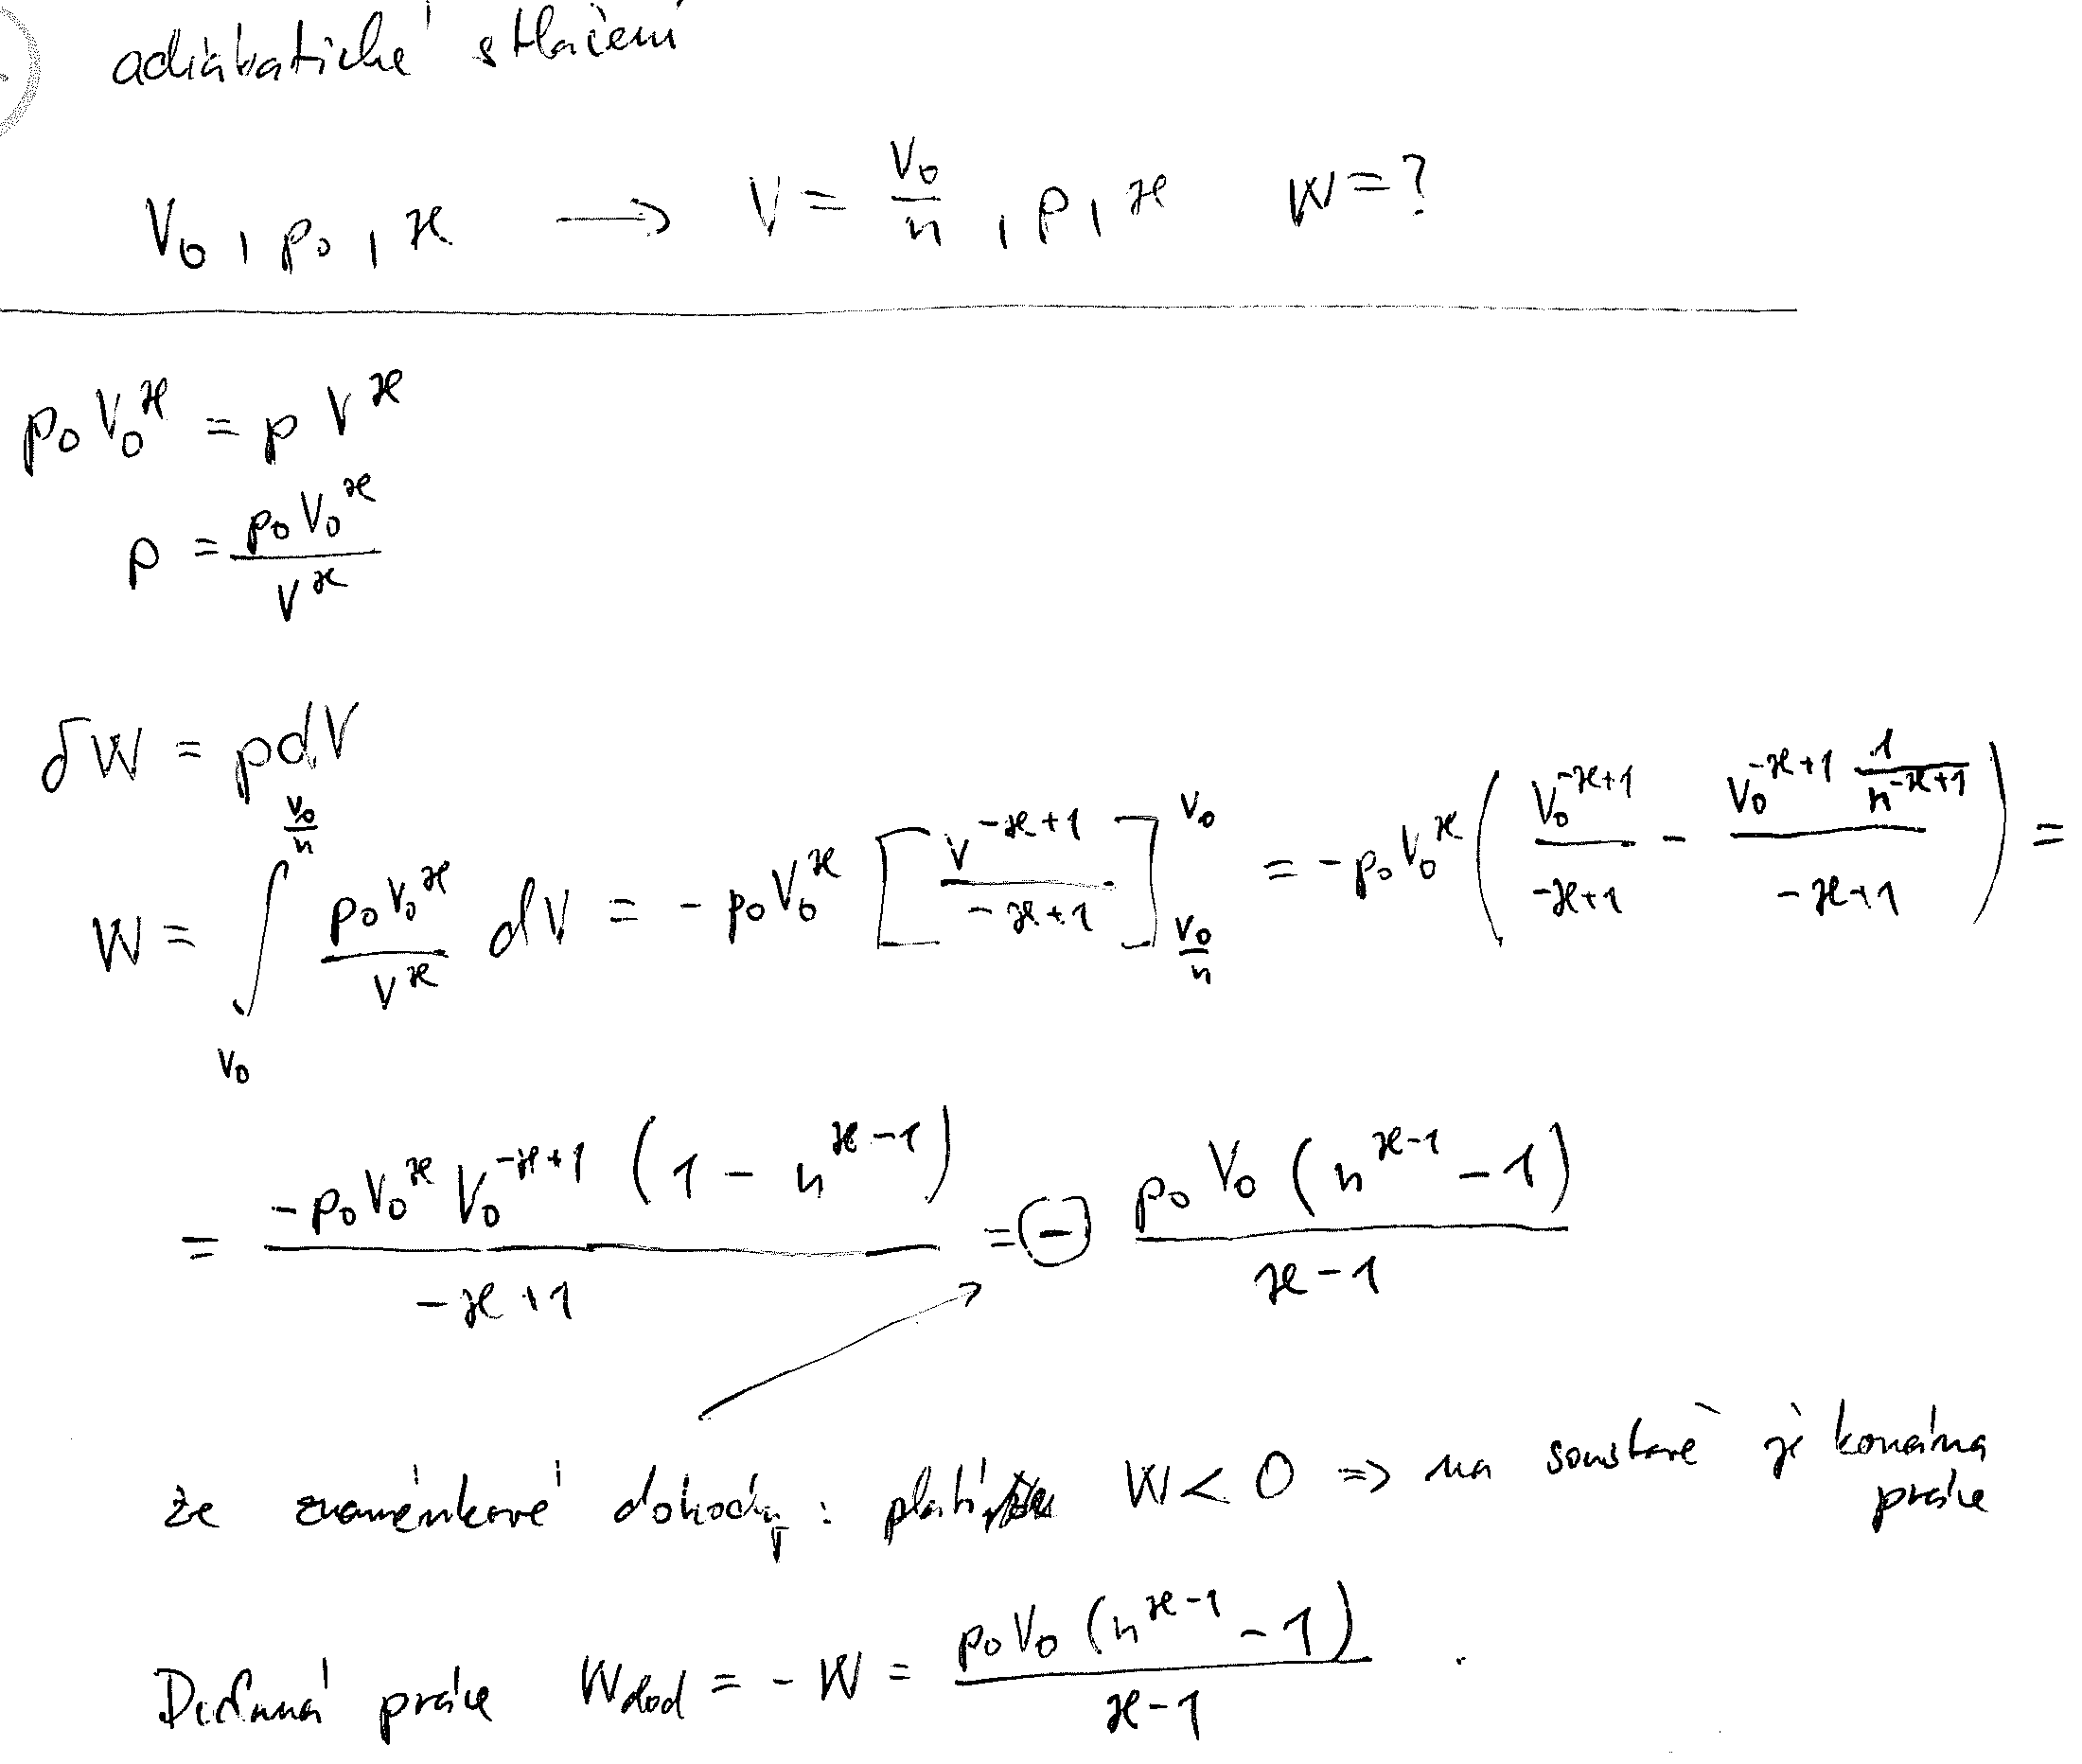 adiabatické stlačení
V₀, p₀, ϰ ⟶ V = V₀/n, p, ϰ W = ?
p₀ V₀^ϰ = p V^ϰ
p = p₀ V₀^ϰ / V^ϰ
δW = p dV
W = ∫_{V₀}^{V₀/n} p₀ V₀^ϰ / V^ϰ dV = - p₀ V₀^ϰ [ V^{-ϰ+1} / (-ϰ+1) ]_{V₀/n}^{V₀} = - p₀ V₀^ϰ ( V₀^{-ϰ+1} / (-ϰ+1) - V₀^{-ϰ+1} (1 / n^{-ϰ+1}) / (-ϰ+1) ) =
= - p₀ V₀^ϰ V₀^{-ϰ+1} (1 - n^{ϰ-1}) / (-ϰ+1) = ⊖ p₀ V₀ (n^{ϰ-1} - 1) / (ϰ-1)
ze znaménkové dohody : platí W < 0 ⇒ na soustavě je konána práce
Dodaná práce W_dod = - W = p₀ V₀ (n^{ϰ-1} - 1) / (ϰ-1) .